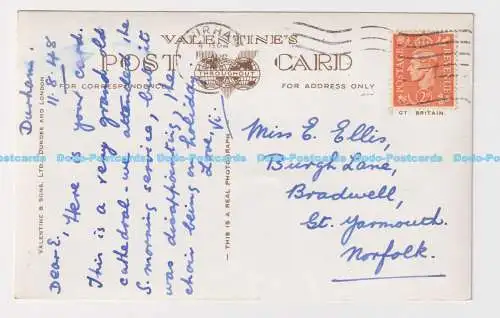 VALENTINE'S
POST CARD
THROUGHOUT
FOR CORRESPONDENCE
FOR ADDRESS ONLY
POSTAGE
REVENUE
GT BRITAIN.
Durham.
11.8.48
Dear E, Here is your card.
This is a very grand old
cathedral - we attended the
S. morning service, but it
was disappointing, the
choir being on holiday.
Love, Vi.
Miss E. Ellis,
Burgh Lane,
Bradwell,
Gt. Yarmouth.
Norfolk.
VALENTINE & SONS, LTD., DUNDEE AND LONDON
— THIS IS A REAL PHOTOGRAPH —
Dodo-Postcards Dodo-Postcards Dodo-Postcards Dodo-Postcards Dodo-Postcards Dodo-Postcards